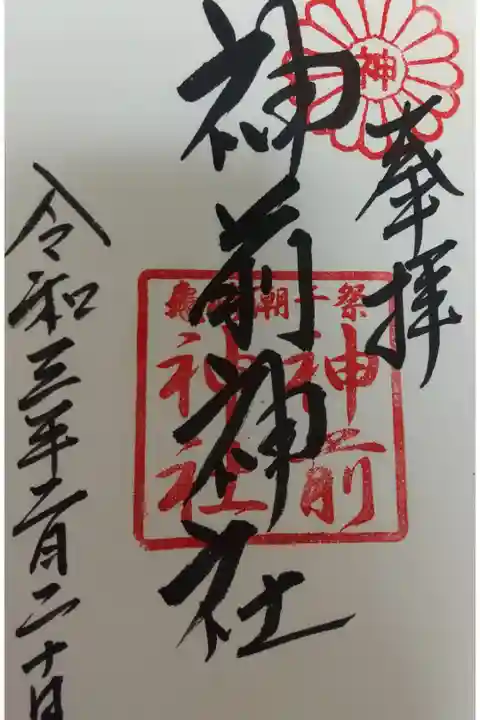 奉拝
神
神前神社
祭千朝
神前
神社
令和三年二月二十日